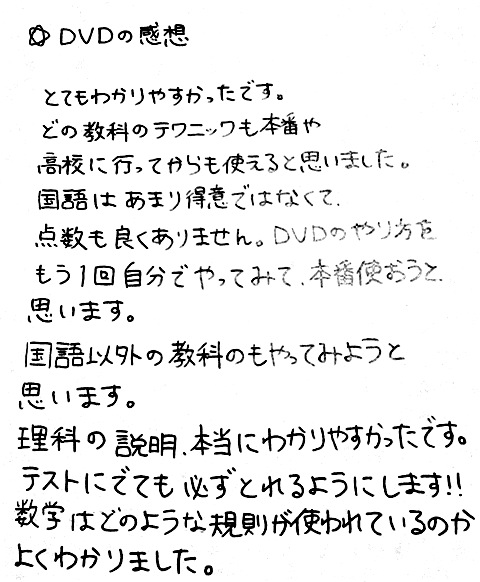 ✩ DVDの感想
とてもわかりやすかったです。
どの教科のテクニックも本番や
高校に行ってからも使えると思いました。
国語はあまり得意ではなくて、
点数も良くありません。DVDのやり方を
もう1回自分でやってみて、本番使おうと、
思います。
国語以外の教科のもやってみようと
思います。
理科の説明、本当にわかりやすかったです。
テストにでても必ずとれるようにします!!
数学はどのような規則が使われているのか
よくわかりました。